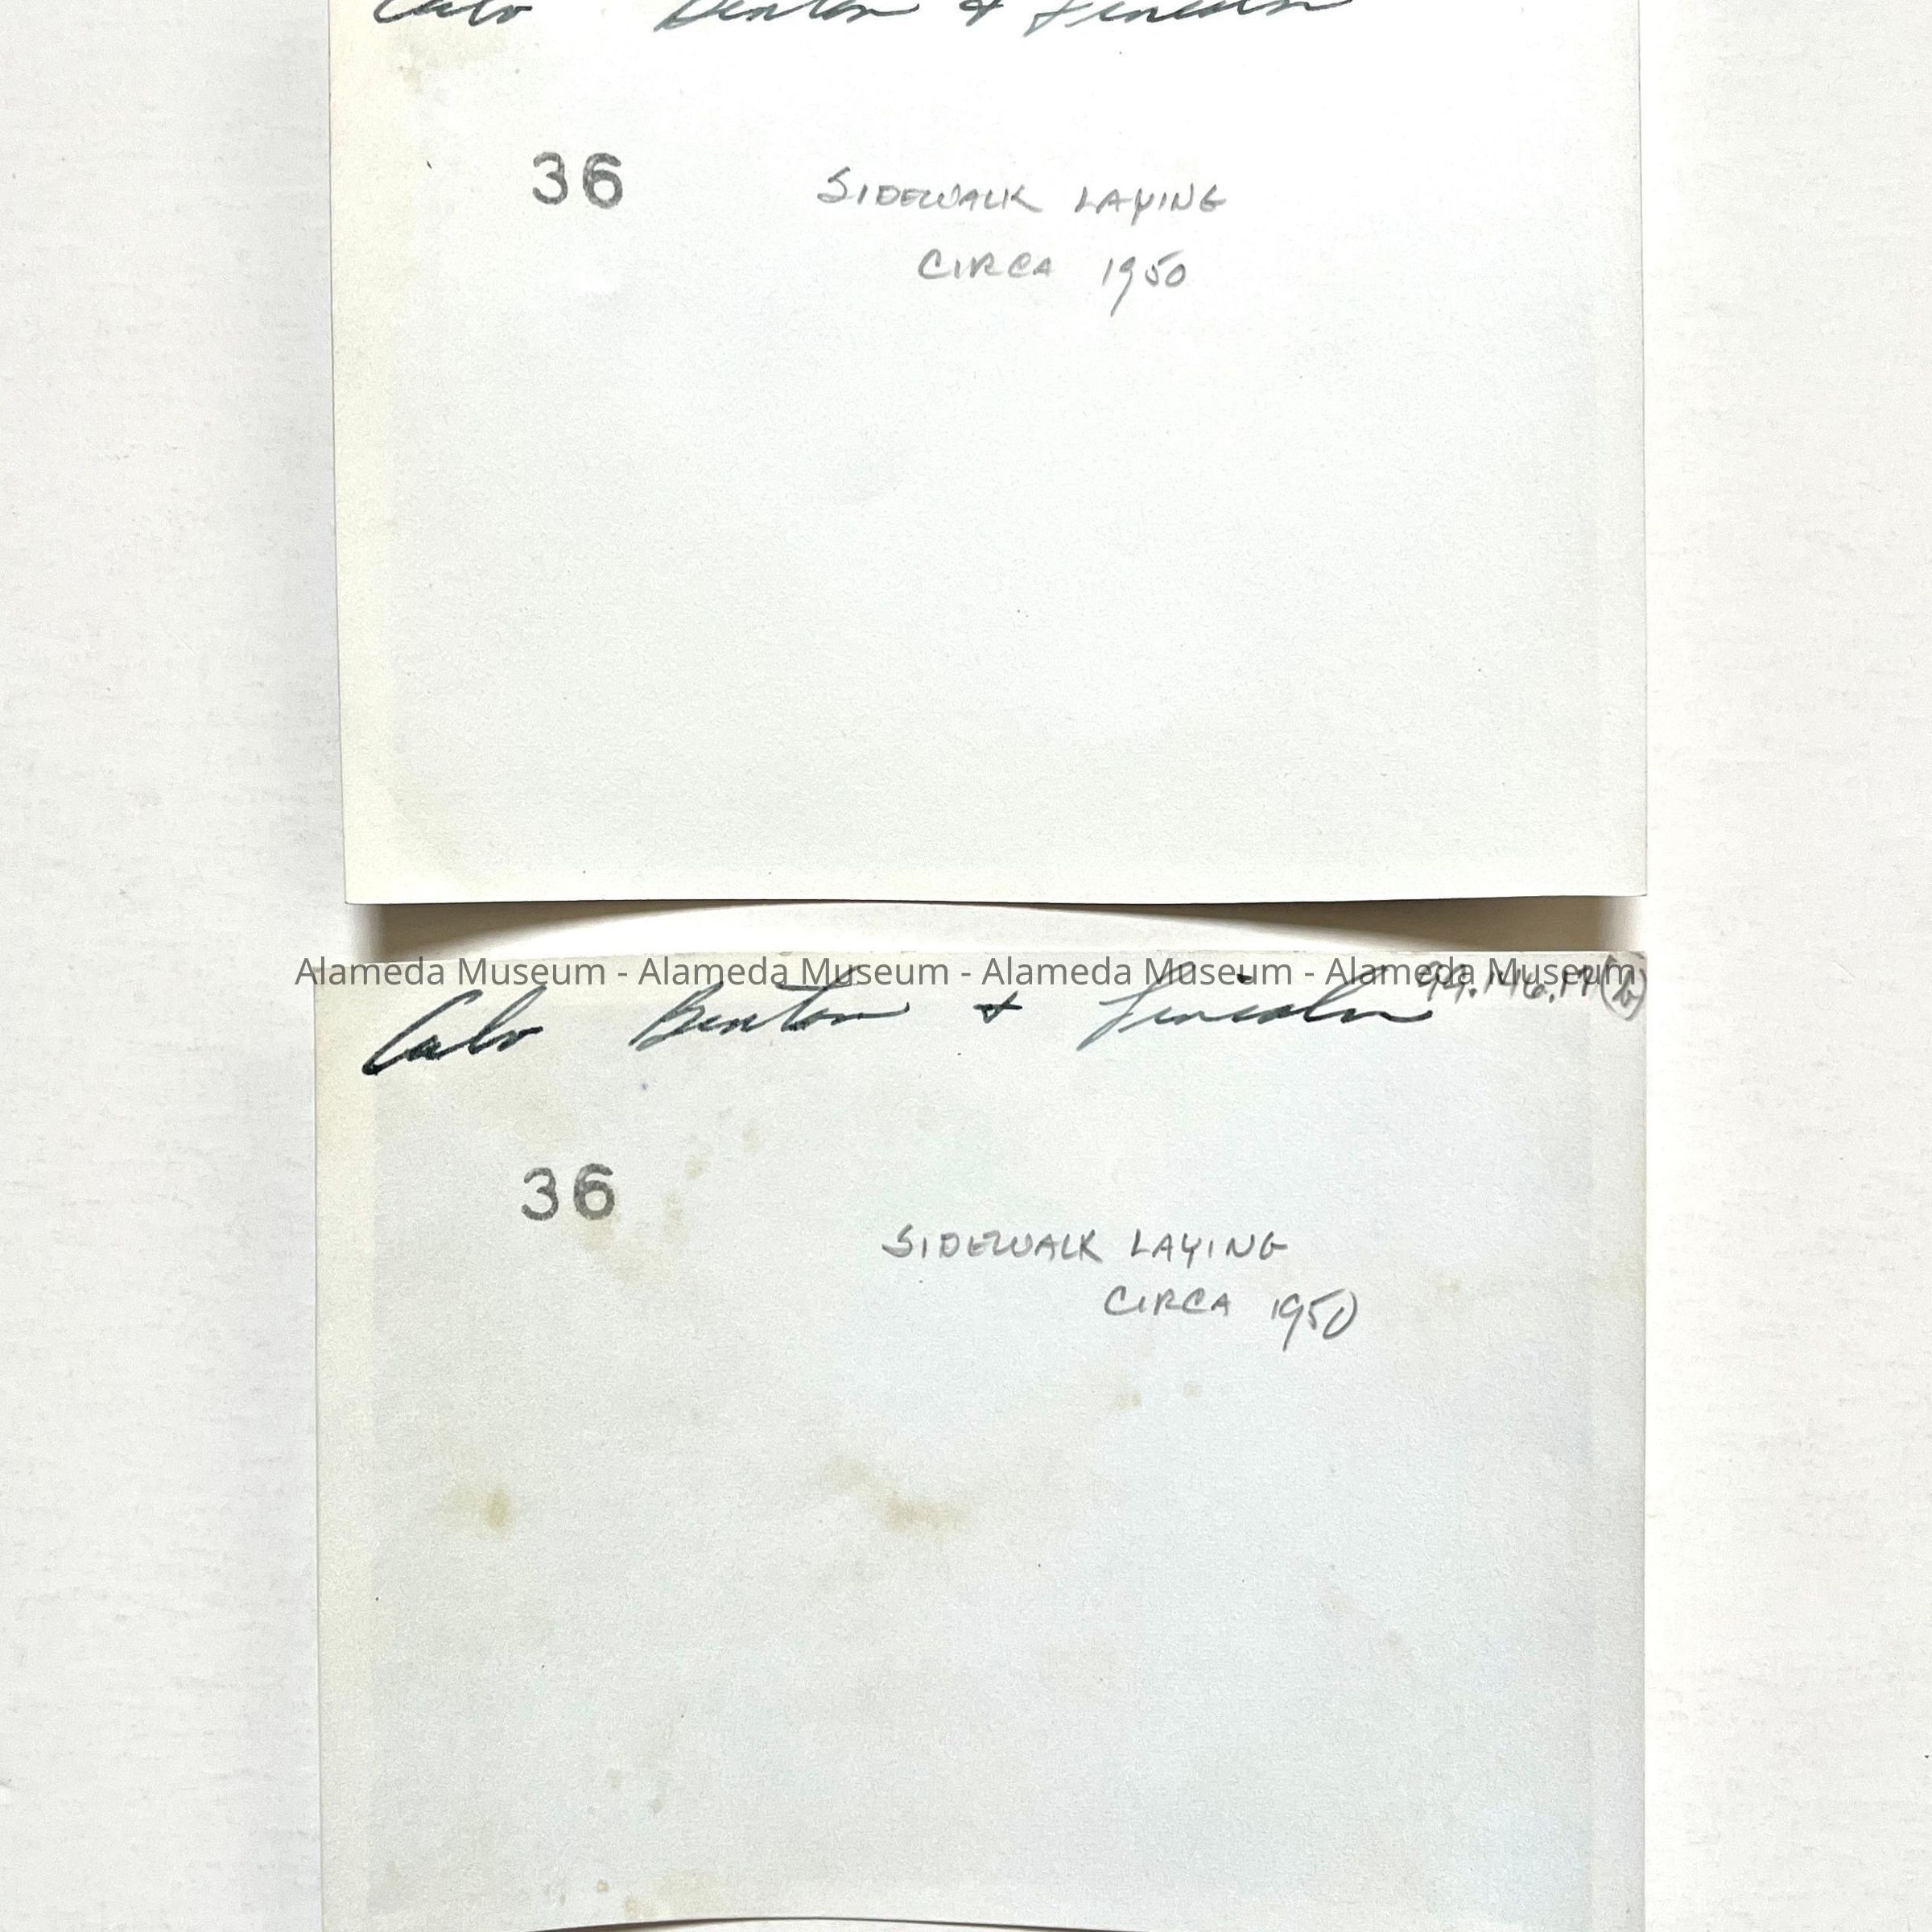 Calv Benton & Lincoln
36
SIDEWALK LAYING
CIRCA 1950
Alameda Museum - Alameda Museum - Alameda Museum - Alameda Museum
Calv Benton & Lincoln
36
SIDEWALK LAYING
CIRCA 1950